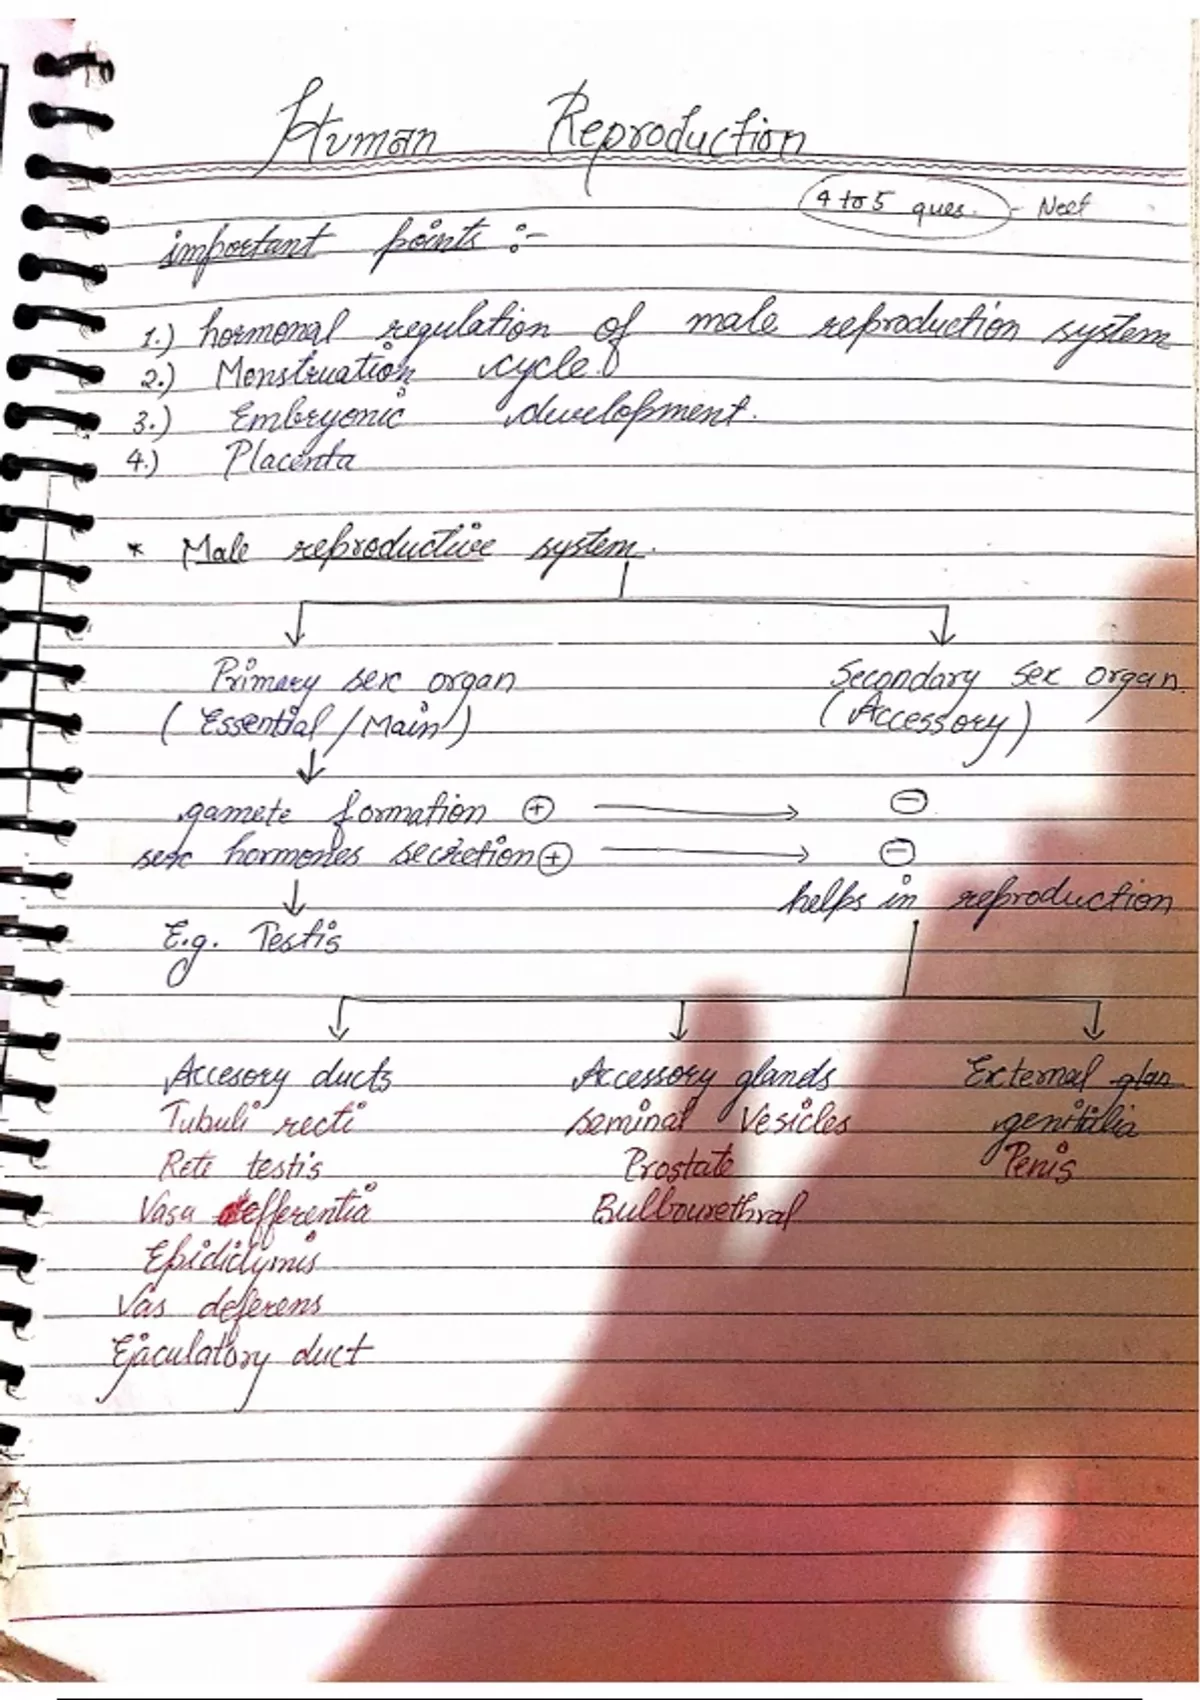 Human Reproduction
4 to 5 ques. - Neet
important points :-
1.) hormonal regulation of male reproduction system
2.) Menstruation cycle.
3.) Embryonic development.
4.) Placenta
* Male reproductive system.
Primary sex organ
(Essential / Main)
Secondary sex organ.
(Accessory)
gamete formation ⊕ → ⊖
sex hormones secretion ⊕ → ⊖
helps in reproduction
E.g. Testis
Accesory ducts
Tubuli recti
Rete testis
Vasa efferentia
Epididymis
Vas deferens
Ejaculatory duct
Accessory glands
seminal Vesicles
Prostate
Bulbourethral
External glan
genitalia
Penis